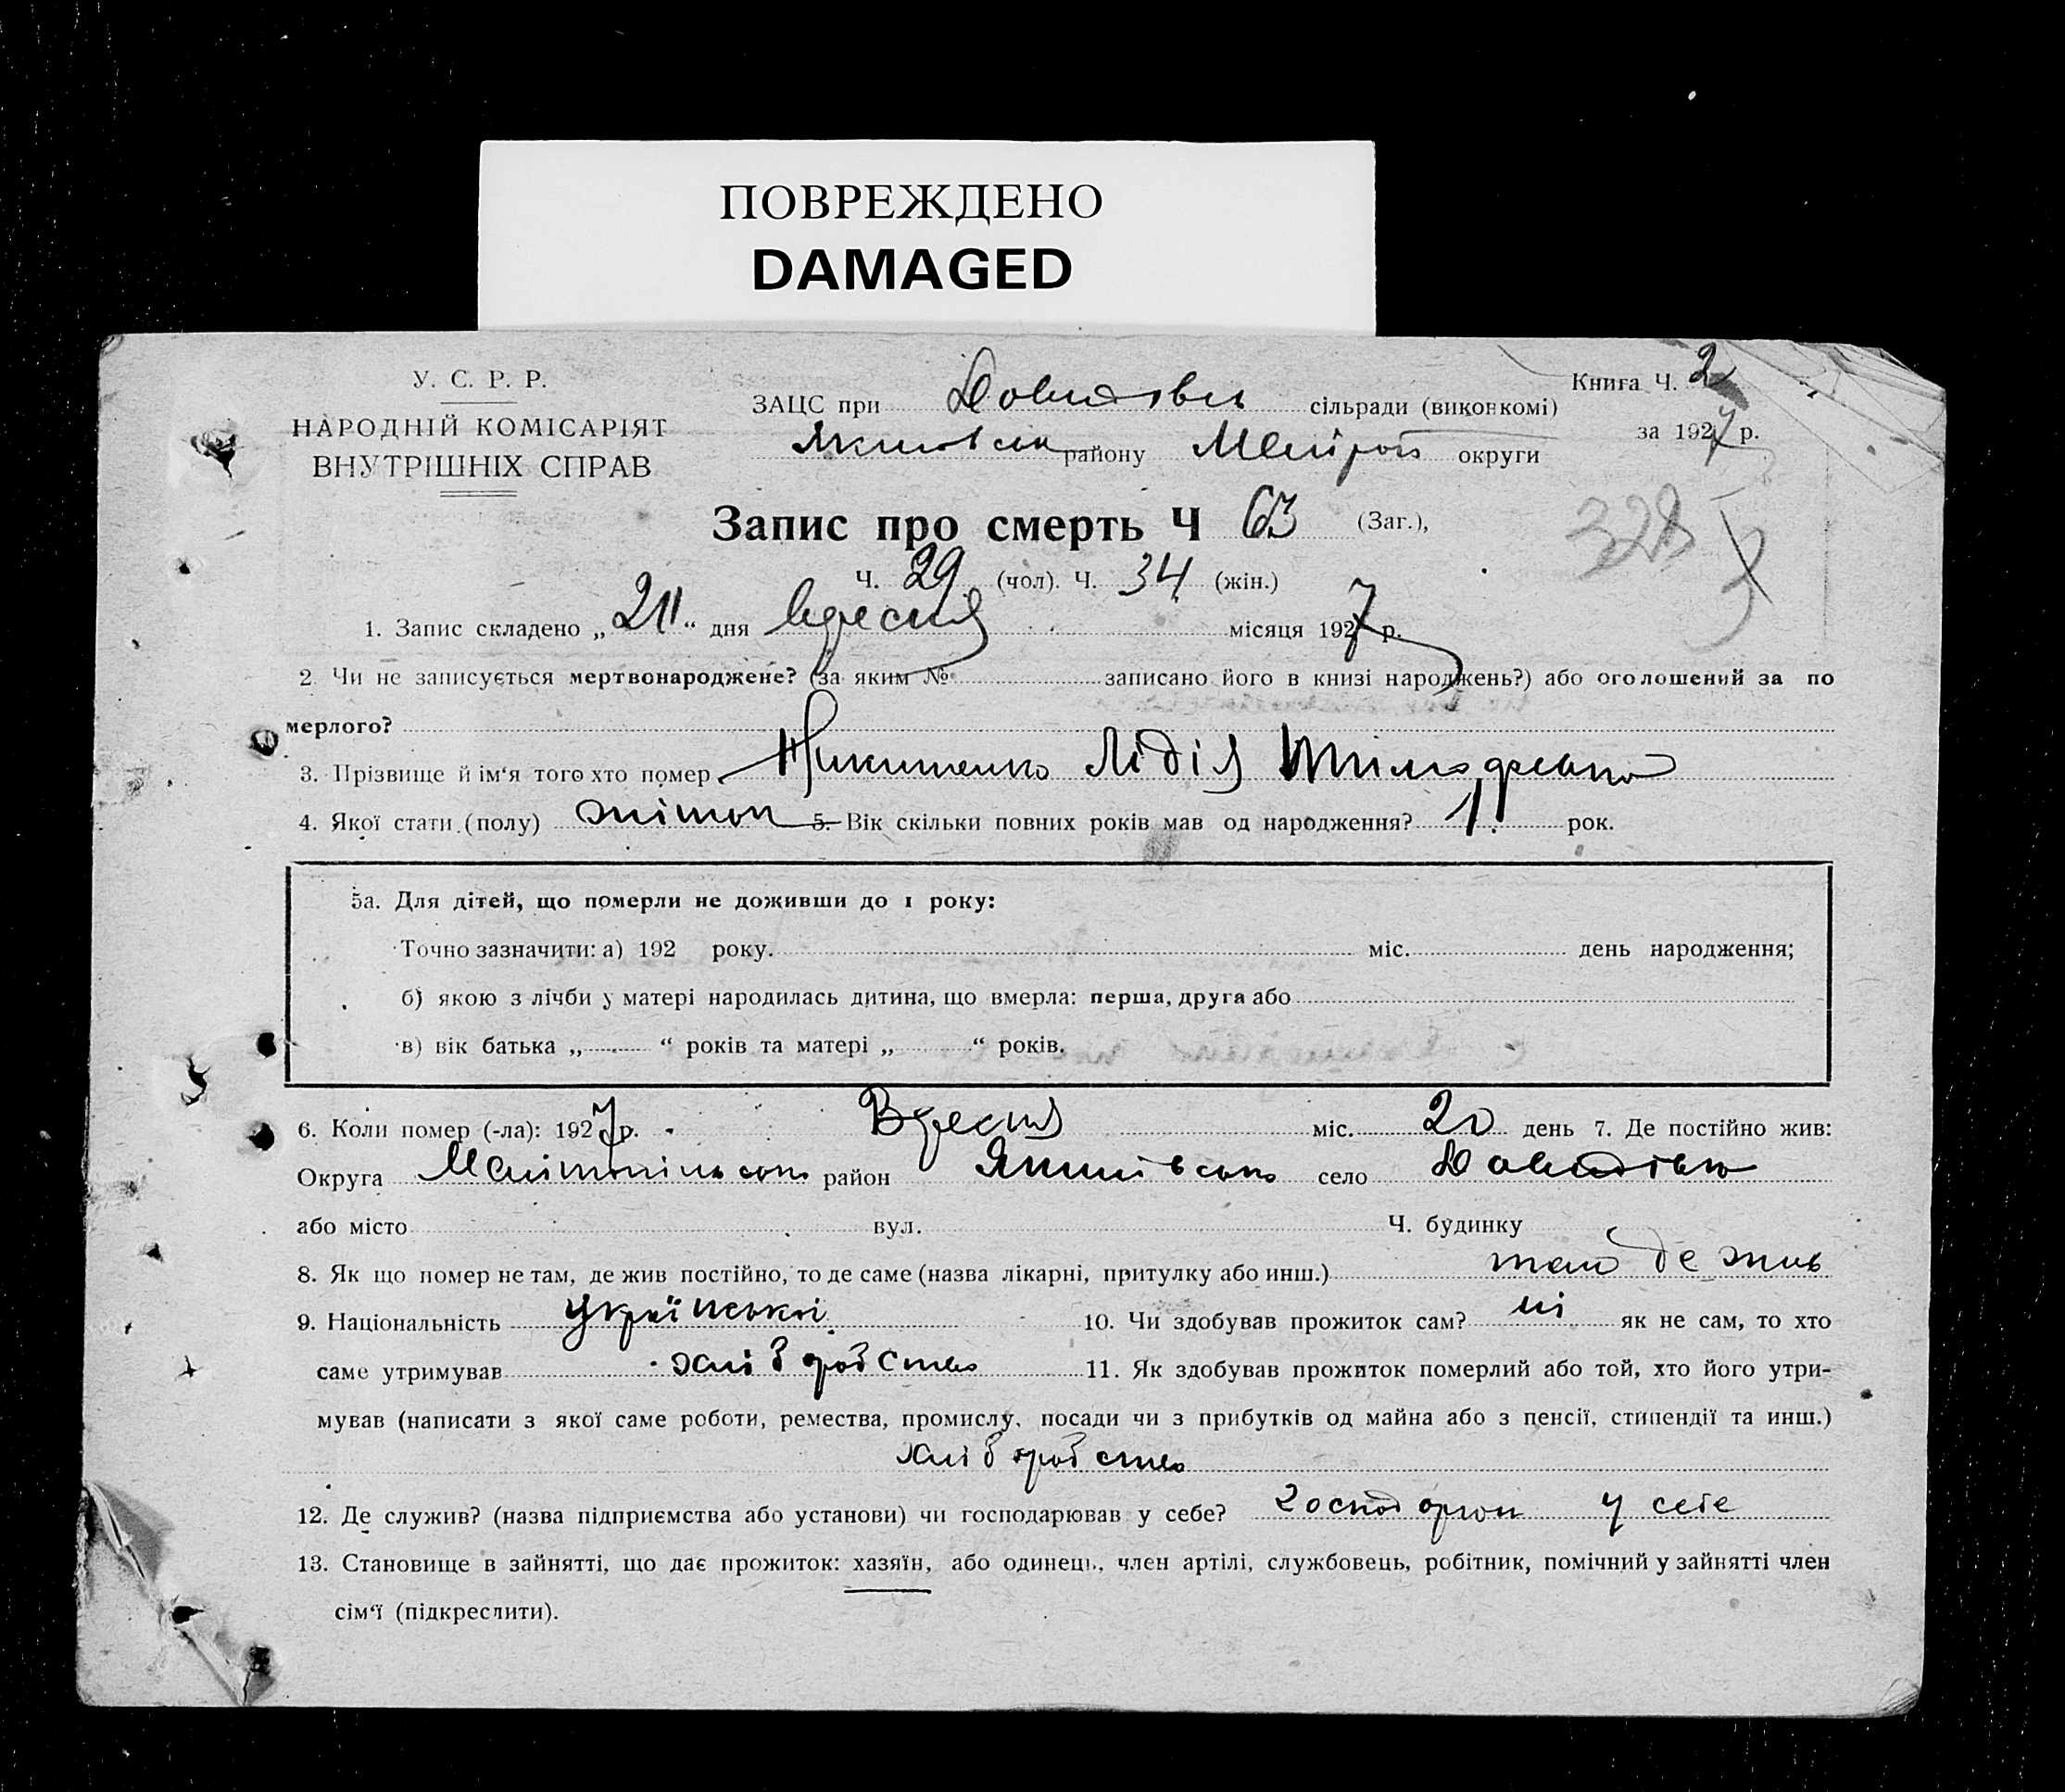 ПОВРЕЖДЕНО
DAMAGED
У. С. Р. Р.
НАРОДНІЙ КОМІСАРІЯТ
ВНУТРІШНІХ СПРАВ
ЗАЦС при сільради (виконкомі)
району округи
Книга Ч. 2
за 1927 р.
Запис про смерть Ч 63 (Заг.),
328
Ч. 29 (чол). Ч. 34 (жін.)
1. Запис складено „21“ дня Вересня місяця 1927 р.
2. Чи не записується мертвонароджене? (за яким № записано його в книзі народжень?) або оголошений за по
мерлого?
3. Прізвище й ім‘я того хто помер Никитенко Лідія
4. Якої стати (полу) жіноч 5. Вік скільки повних років мав од народження? 1 рок.
5а. Для дітей, що померли не доживши до 1 року:
Точно зазначити: а) 192 року. міс. день народження;
б) якою з лічби у матері народилась дитина, що вмерла: перша, друга або
в) вік батька „ “ років та матері „ “ років.
6. Коли помер (-ла): 1927 р. Вересня міс. 20 день 7. Де постійно жив:
Округа Мелітопільська район Якимівська село Давидівка
або місто вул. Ч. будинку
8. Як що помер не там, де жив постійно, то де саме (назва лікарні, притулку або инш.) там де жив
9. Національність українська 10. Чи здобував прожиток сам? ні як не сам, то хто
саме утримував хліборобство 11. Як здобував прожиток померлий або той, хто його утри-
мував (написати з якої саме роботи, ремества, промислу, посади чи з прибутків од майна або з пенсії, стипендії та инш.)
хліборобство
12. Де служив? (назва підприємства або установи) чи господарював у себе? у себе
13. Становище в зайнятті, що дає прожиток: хазяїн, або одинець, член артілі, службовець, робітник, помічний у зайнятті член
сім‘ї (підкреслити).